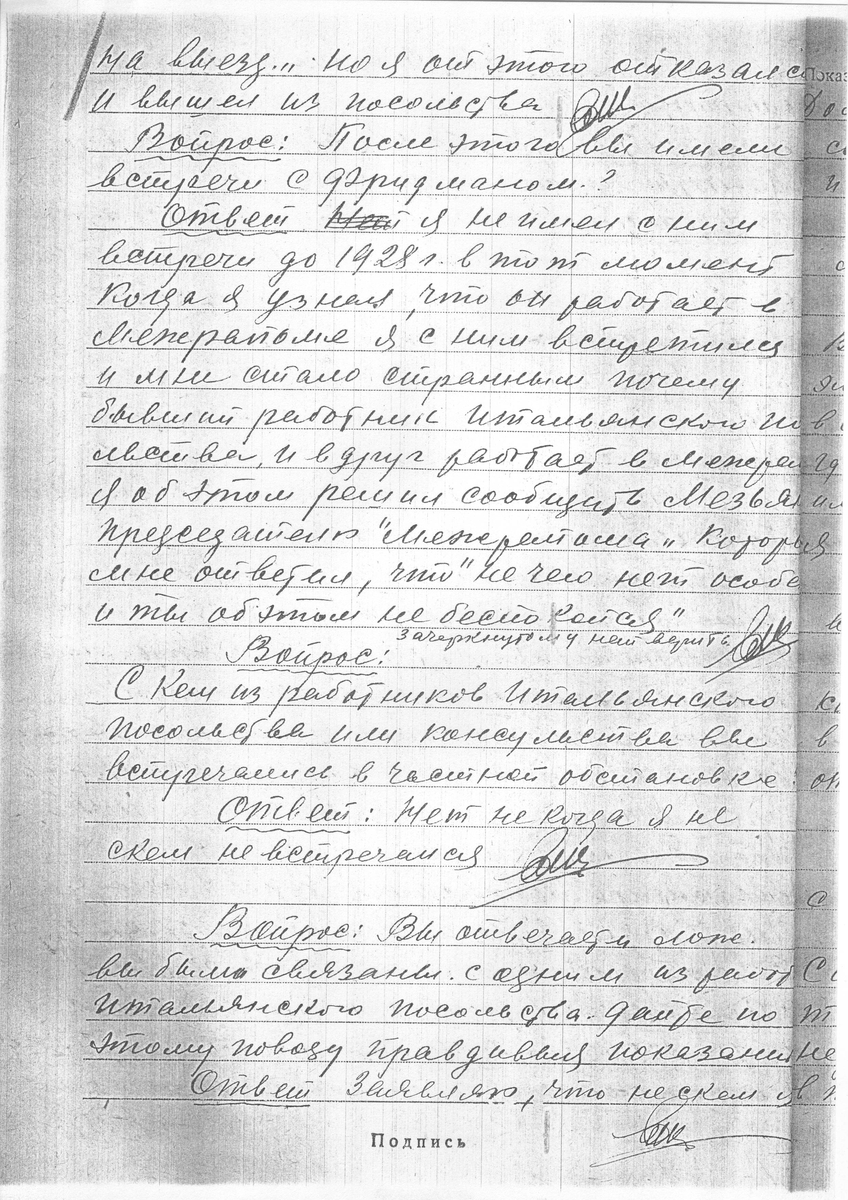 на выезд„ но я от этого отказался
и вышел из посольства
Вопрос: После этого вы имели
встречи с Фридманом?
Ответ Нет я не имел с ним
встречи до 1928 г. в тот момент
когда я узнал, что он работает в
Межрапоме я с ним встретился
и мне стало странным почему
бывший работник Итальянского по
льства, и вдруг работает в Межрап
я об этом решил сообщить
председателю "Межрапома„ который
мне ответил, что "не чего нет особе
и ты об этом не беспокойся"
зачеркнутому нет верить
Вопрос:
С кем из работников Итальянского
посольства или консульства вы
встречались в частной обстановке
Ответ: Нет не когда я не
скем не встречался
Вопрос: Вы отвечаете лож.
вы были связаны с одним из работ
Итальянского посольства. Дайте по
этому поводу правдивыя показания
Ответ Заявляю, что не скем я
Подпись